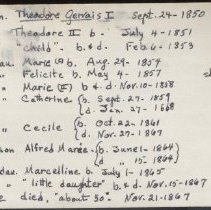 n. Theodore Gervais I Sept. 24-1850
Theodore II b. July 4-1851
"child". b. & d. Feb. 6-1853
au. Marie (I) b. Aug. 29-1854
" Felicite b. May 4-1857
" Marie (II) b. & d. Nov. 10-1858
" Catherine { b. Sept. 27-1859
{ d. Jan. 27-1868
" Cecile { b. Oct. 22-1861
{ d. Nov. 27-1867
son Alfred Marée. { b. June 1-1864
{ d. " 15-1864
dau. Marcelline b. July 1-1865
" "little daughter" b. & d. Nov. 15-1867
e died, "about 30" Nov. 21-1867